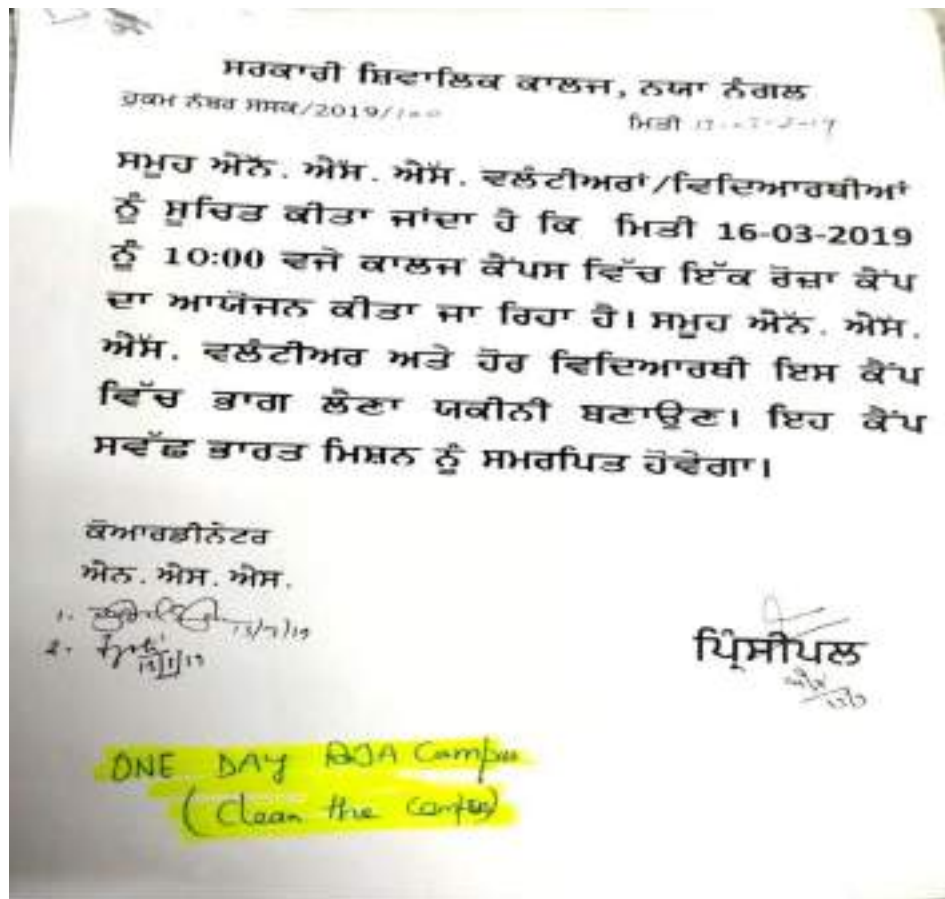 ਸਰਕਾਰੀ ਸ਼ਿਵਾਲਿਕ ਕਾਲਜ, ਨਯਾ ਨੰਗਲ
ਹੁਕਮ ਨੰਬਰ ਸਸਕ/2019/100
ਮਿਤੀ
ਸਮੂਹ ਐਨੱ. ਐਸੱ. ਐਸੱ. ਵਲੰਟੀਅਰਾਂ/ਵਿਦਿਆਰਥੀਆਂ
ਨੂੰ ਸੂਚਿਤ ਕੀਤਾ ਜਾਂਦਾ ਹੈ ਕਿ ਮਿਤੀ 16-03-2019
ਨੂੰ 10:00 ਵਜੇ ਕਾਲਜ ਕੈਂਪਸ ਵਿੱਚ ਇੱਕ ਰੋਜ਼ਾ ਕੈਂਪ
ਦਾ ਆਯੋਜਨ ਕੀਤਾ ਜਾ ਰਿਹਾ ਹੈ। ਸਮੂਹ ਐਨੱ. ਐਸੱ.
ਐਸੱ. ਵਲੰਟੀਅਰ ਅਤੇ ਹੋਰ ਵਿਦਿਆਰਥੀ ਇਸ ਕੈਂਪ
ਵਿੱਚ ਭਾਗ ਲੈਣਾ ਯਕੀਨੀ ਬਣਾਉਣ। ਇਹ ਕੈਂਪ
ਸਵੱਛ ਭਾਰਤ ਮਿਸ਼ਨ ਨੂੰ ਸਮਰਪਿਤ ਹੋਵੇਗਾ।
ਕੋਆਰਡੀਨੇਟਰ
ਐਨ. ਐਸ. ਐਸ.
1.
2.
ਪ੍ਰਿੰਸੀਪਲ
ONE DAY Campus
(Clean the Campus)